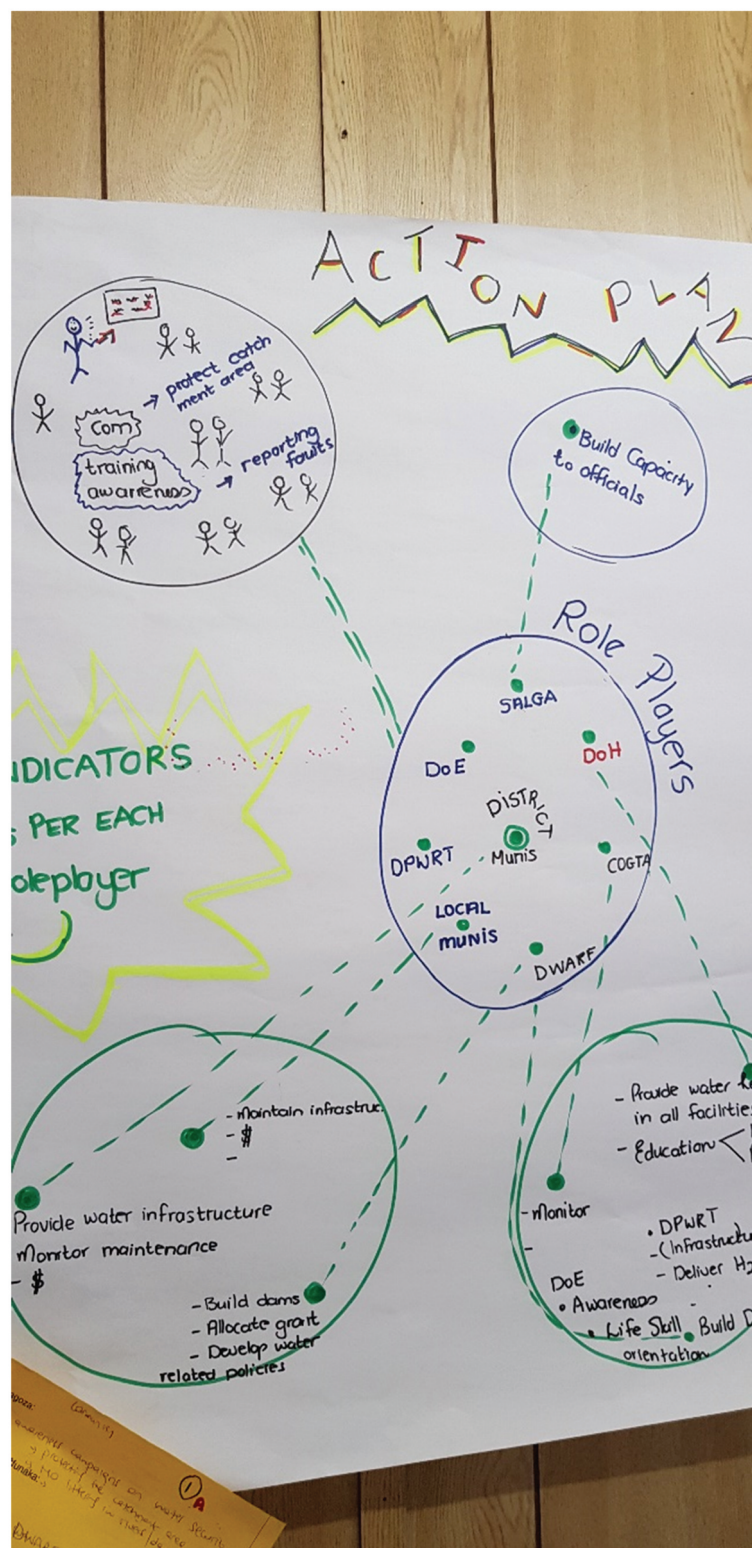 ACTION PLAN
com
→ protect catch
ment area
training
awarreness
→ reporting
faults
Build Capacity
to officials
Role Players
SALGA
DoE
DoH
DISTRICT
Munis
DPWRT
COGTA
LOCAL
MUNIS
DWARF
NDICATORS
PER EACH
oleplayer
- Maintain infrastruc.
- $
-
Provide water infrastructure
Monitor maintenance
- $
- Build dams
- Allocate grant
- Develop water
related policies
- Provide water
in all facilitie
- Education
- Monitor
-
• DPWRT
- (Infrastructu
- Deliver H2
-
DoE
• Awareness
• Life Skill
orientation
• Build D
awareness campaigns on water
→ protecting the catchment area
1
A